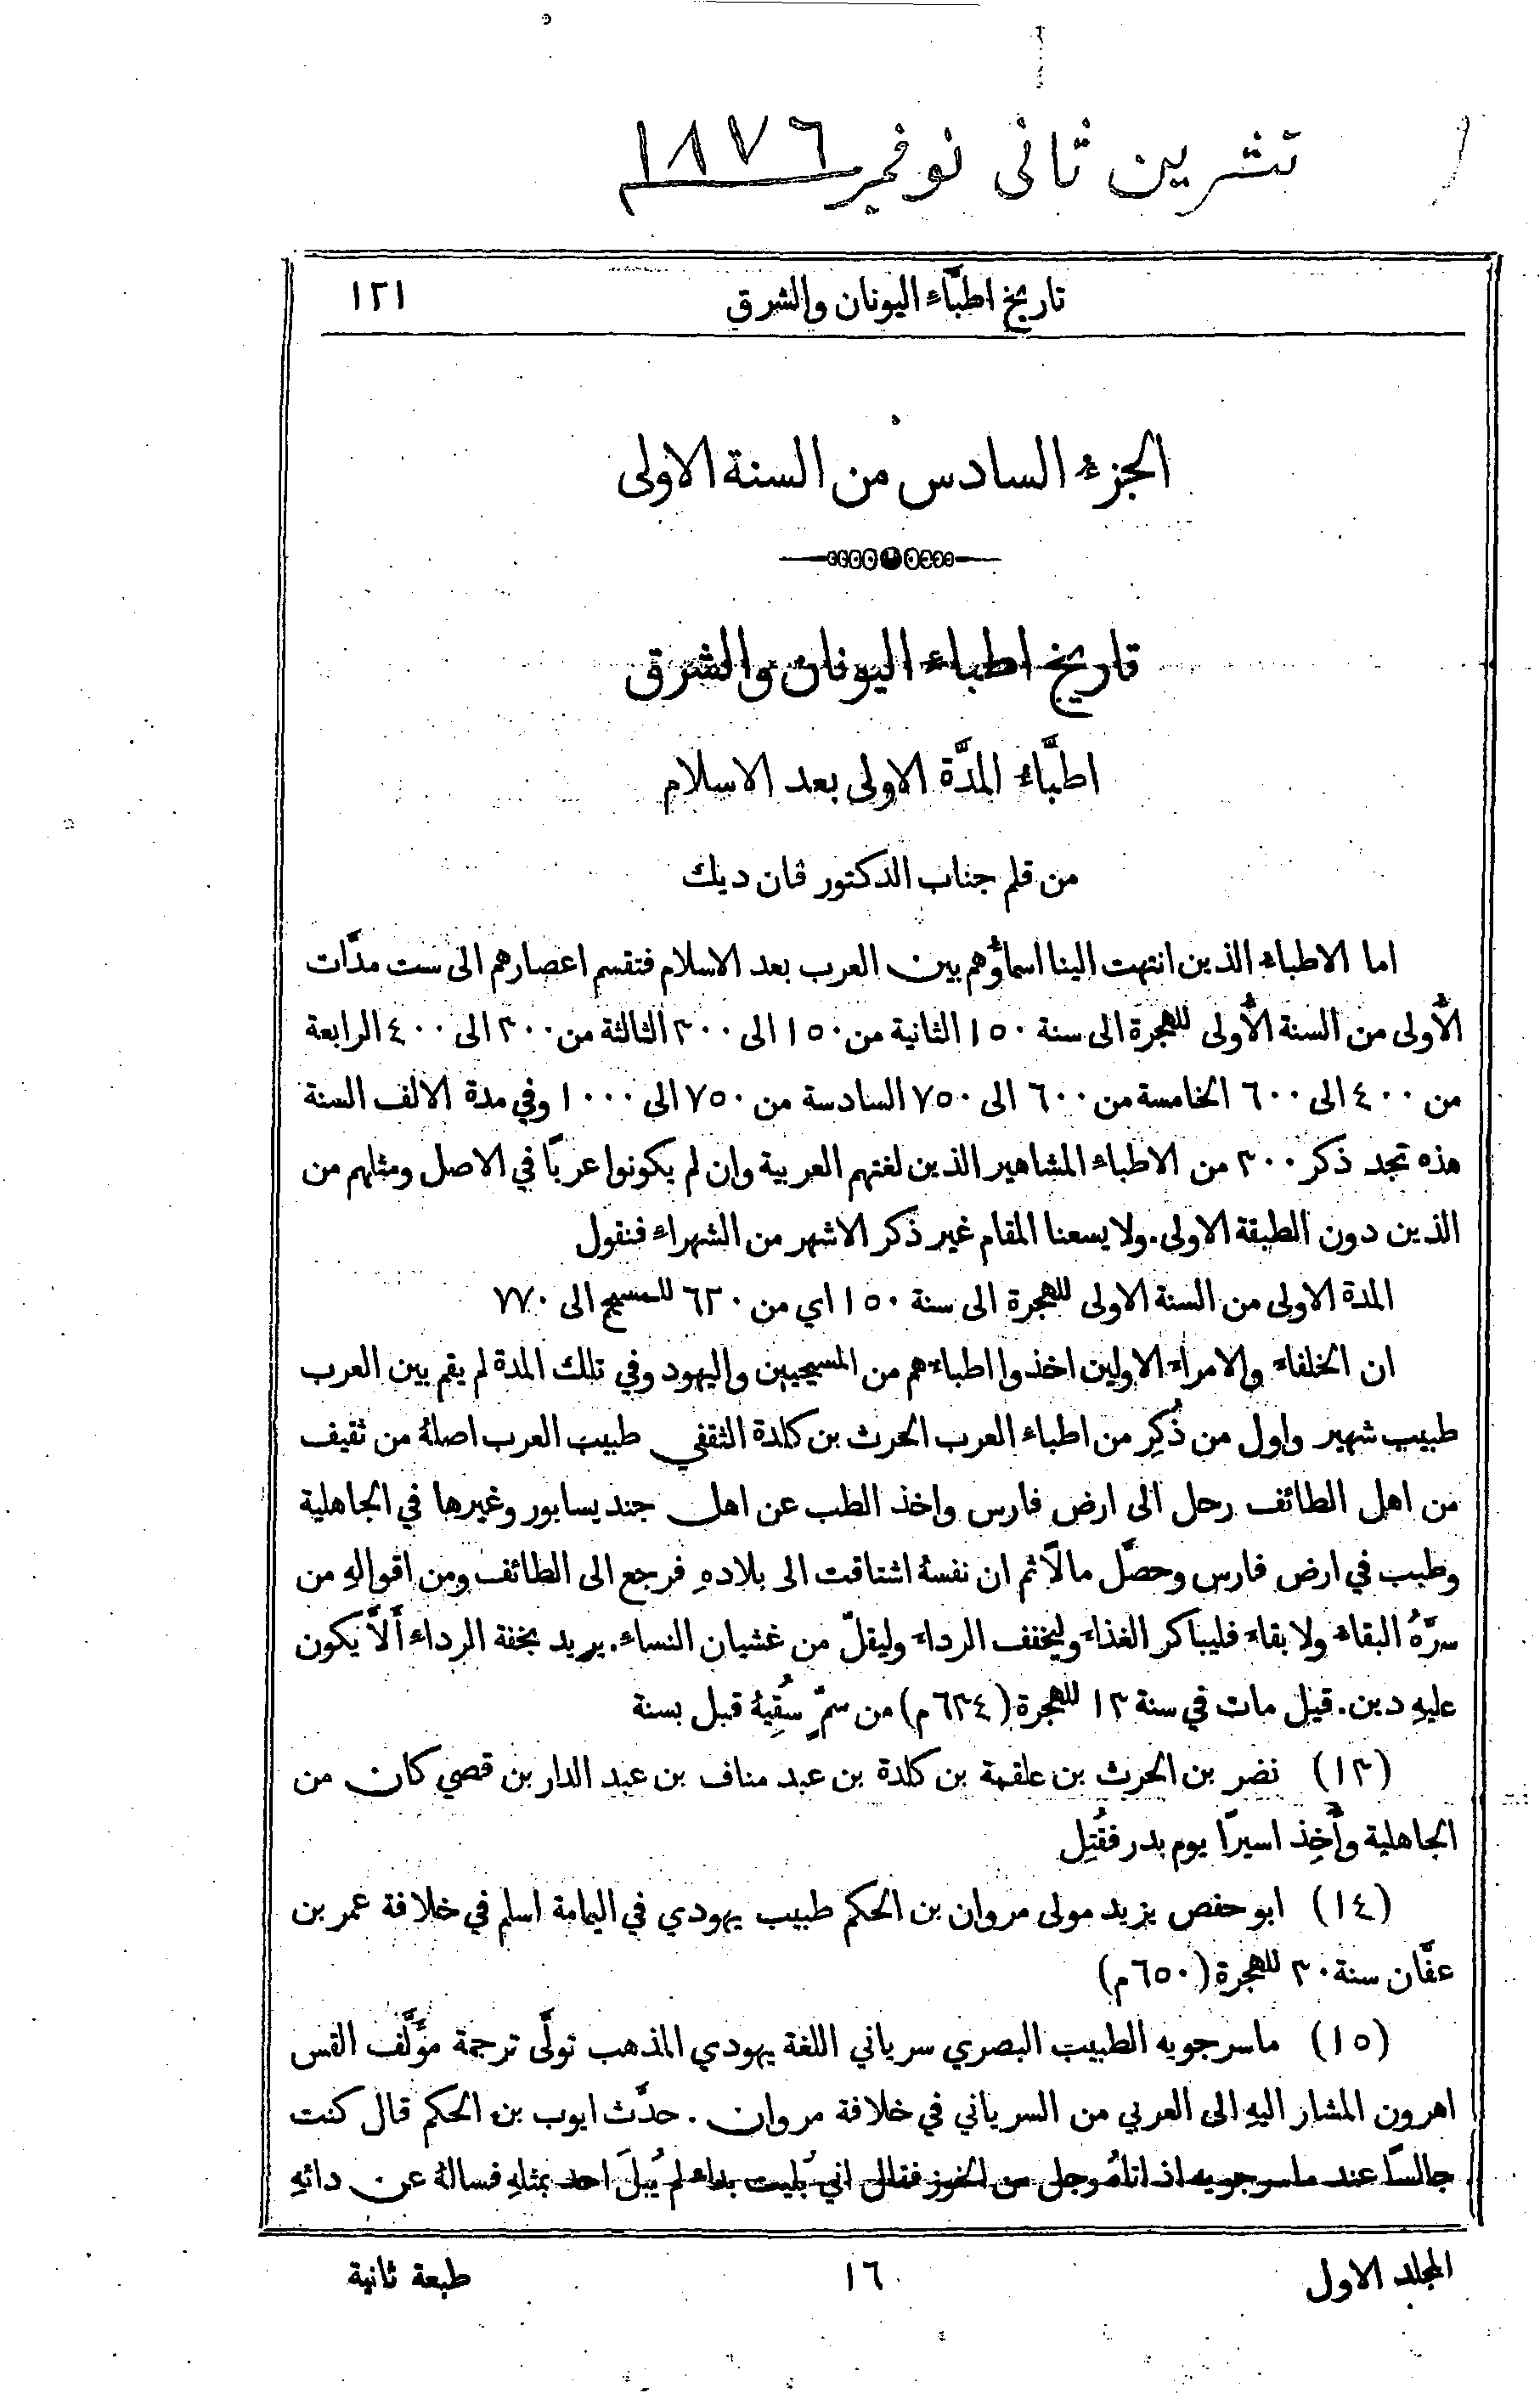 تشرين ثانى نوفمبر ١٨٧٦م
تاريخ اطبَّاء اليونان والشرق ١٢١
الجزء السادس من السنة الاولى
تاريخ اطباء اليونان والشرق
اطبَّاء المدَّة الاولى بعد الاسلام
من قلم جناب الدكتور ڤان ديك
اما الاطباء الذين انتهت الينا اسماؤُهم بين العرب بعد الاسلام فتقسم اعصارهم الى ست مدَّات
الأُولى من السنة الأُولى للهجرة الى سنة ١٥٠ الثانية من ١٥٠ الى ٣٠٠ الثالثة من ٣٠٠ الى ٤٠٠ الرابعة
من ٤٠٠ الى ٦٠٠ الخامسة من ٦٠٠ الى ٧٥٠ السادسة من ٧٥٠ الى ١٠٠٠ وفي مدة الالف السنة
هذه تجد ذكر ٣٠٠ من الاطباء المشاهير الذين لغتهم العربية وان لم يكونوا عربًا في الاصل ومثلهم من
الذين دون الطبقة الاولى. ولا يسعنا المقام غير ذكر الاشهر من الشهراء فنقول
المدة الاولى من السنة الاولى للهجرة الى سنة ١٥٠ اي من ٦٣٠ للمسيح الى ٧٧٠
ان الخلفاء والامراء الاولين اخذوا اطباءهم من المسيحيين واليهود وفي تلك المدة لم يقم بين العرب
طبيب شهير واول من ذُكِر من اطباء العرب الحرث بن كلدة الثقفي طبيب العرب اصلهُ من ثقيف
من اهل الطائف رحل الى ارض فارس واخذ الطب عن اهل جنديسابور وغيرها في الجاهلية
وطبب في ارض فارس وحصَّل مالًا ثم ان نفسهُ اشتاقت الى بلادهِ فرجع الى الطائف ومن اقوالهِ من
سرَّهُ البقاء ولا بقاء فليباكر الغذاء وليخفف الرداء وليقلّ من غشيان النساء. يريد بخفة الرداء أَلَّا يكون
عليهِ دين. قيل مات في سنة ١٣ للهجرة (٦٣٤م) من سمٍّ سُقِيهُ قبل بسنة
(١٣) نضر بن الحرث بن علقمة بن كلدة بن عبد مناف بن عبد الدار بن قصي كان من
الجاهلية وأُخِذ اسيرًا يوم بدر فقُتِل
(١٤) ابو حفص يزيد مولى مروان بن الحكم طبيب يهودي في اليمامة اسلم في خلافة عمر بن
عفَّان سنة ٣٠ للهجرة (٦٥٠م)
(١٥) ماسرجويه الطبيب البصري سرياني اللغة يهودي المذهب تولَّى ترجمة مؤَلَّف القس
اهرون المشار اليهِ الى العربي من السرياني في خلافة مروان. حدَّث ايوب بن الحكم قال كنت
جالسًا عند ماسرجويه اذ اتاهُ رجل من الخوز فقال اني بُليت بداء لم يُبلَ احد بمثلهِ فسالهُ عن دائهِ
المجلد الاول ١٦ طبعة ثانية